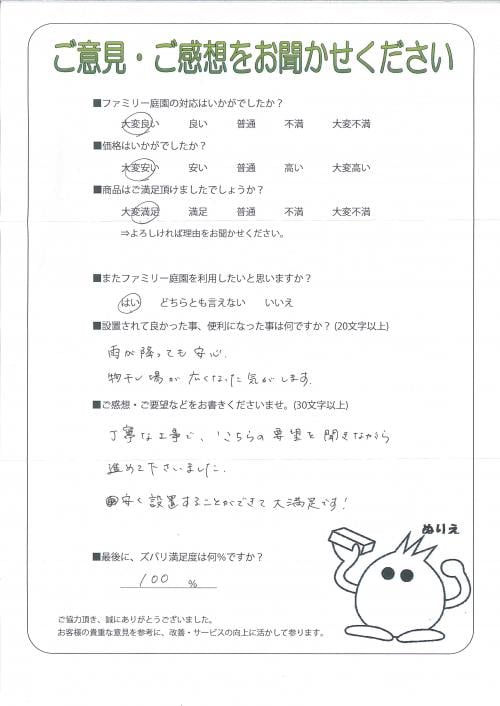 ご意見・ご感想をお聞かせください
■ファミリー庭園の対応はいかがでしたか？
大変良い 良い 普通 不満 大変不満
■価格はいかがでしたか？
大変安い 安い 普通 高い 大変高い
■商品はご満足頂けましたでしょうか？
大変満足 満足 普通 不満 大変不満
⇒よろしければ理由をお聞かせください。
■またファミリー庭園を利用したいと思いますか？
はい どちらとも言えない いいえ
■設置されて良かった事、便利になった事は何ですか？(20文字以上)
雨が降っても安心。
物干し場が広くなった気がします。
■ご感想・ご要望などをお書きくださいませ。(30文字以上)
丁寧な工事で、こちらの要望を聞きながら
進めて下さいました。
安く設置することができて大満足です！
ぬりえ
■最後に、ズバリ満足度は何％ですか？
100 %
ご協力頂き、誠にありがとうございました。
お客様の貴重な意見を参考に、改善・サービスの向上に活かして参ります。